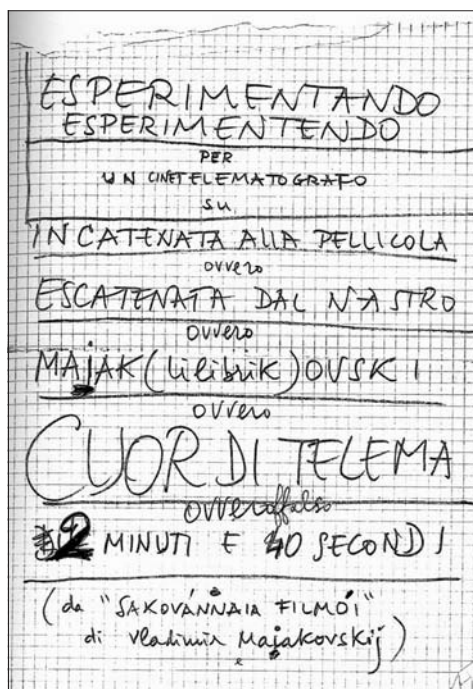 ESPERIMENTANDO
ESPERIMENTENDO
PER
UN CINETELEMATOGRAFO
SU
INCATENATA ALLA PELLICOLA
OVVERO
ESCATENATA DAL NASTRO
OVVERO
MAJAK(lilibrik)OVSKI
OVVERO
CUOR DI TELEMA
OVVEROffalso
2 MINUTI E 40 SECONDI
(da "SAKOVÀNNAIA FILMÓI"
di Vladimir Majakovskij)